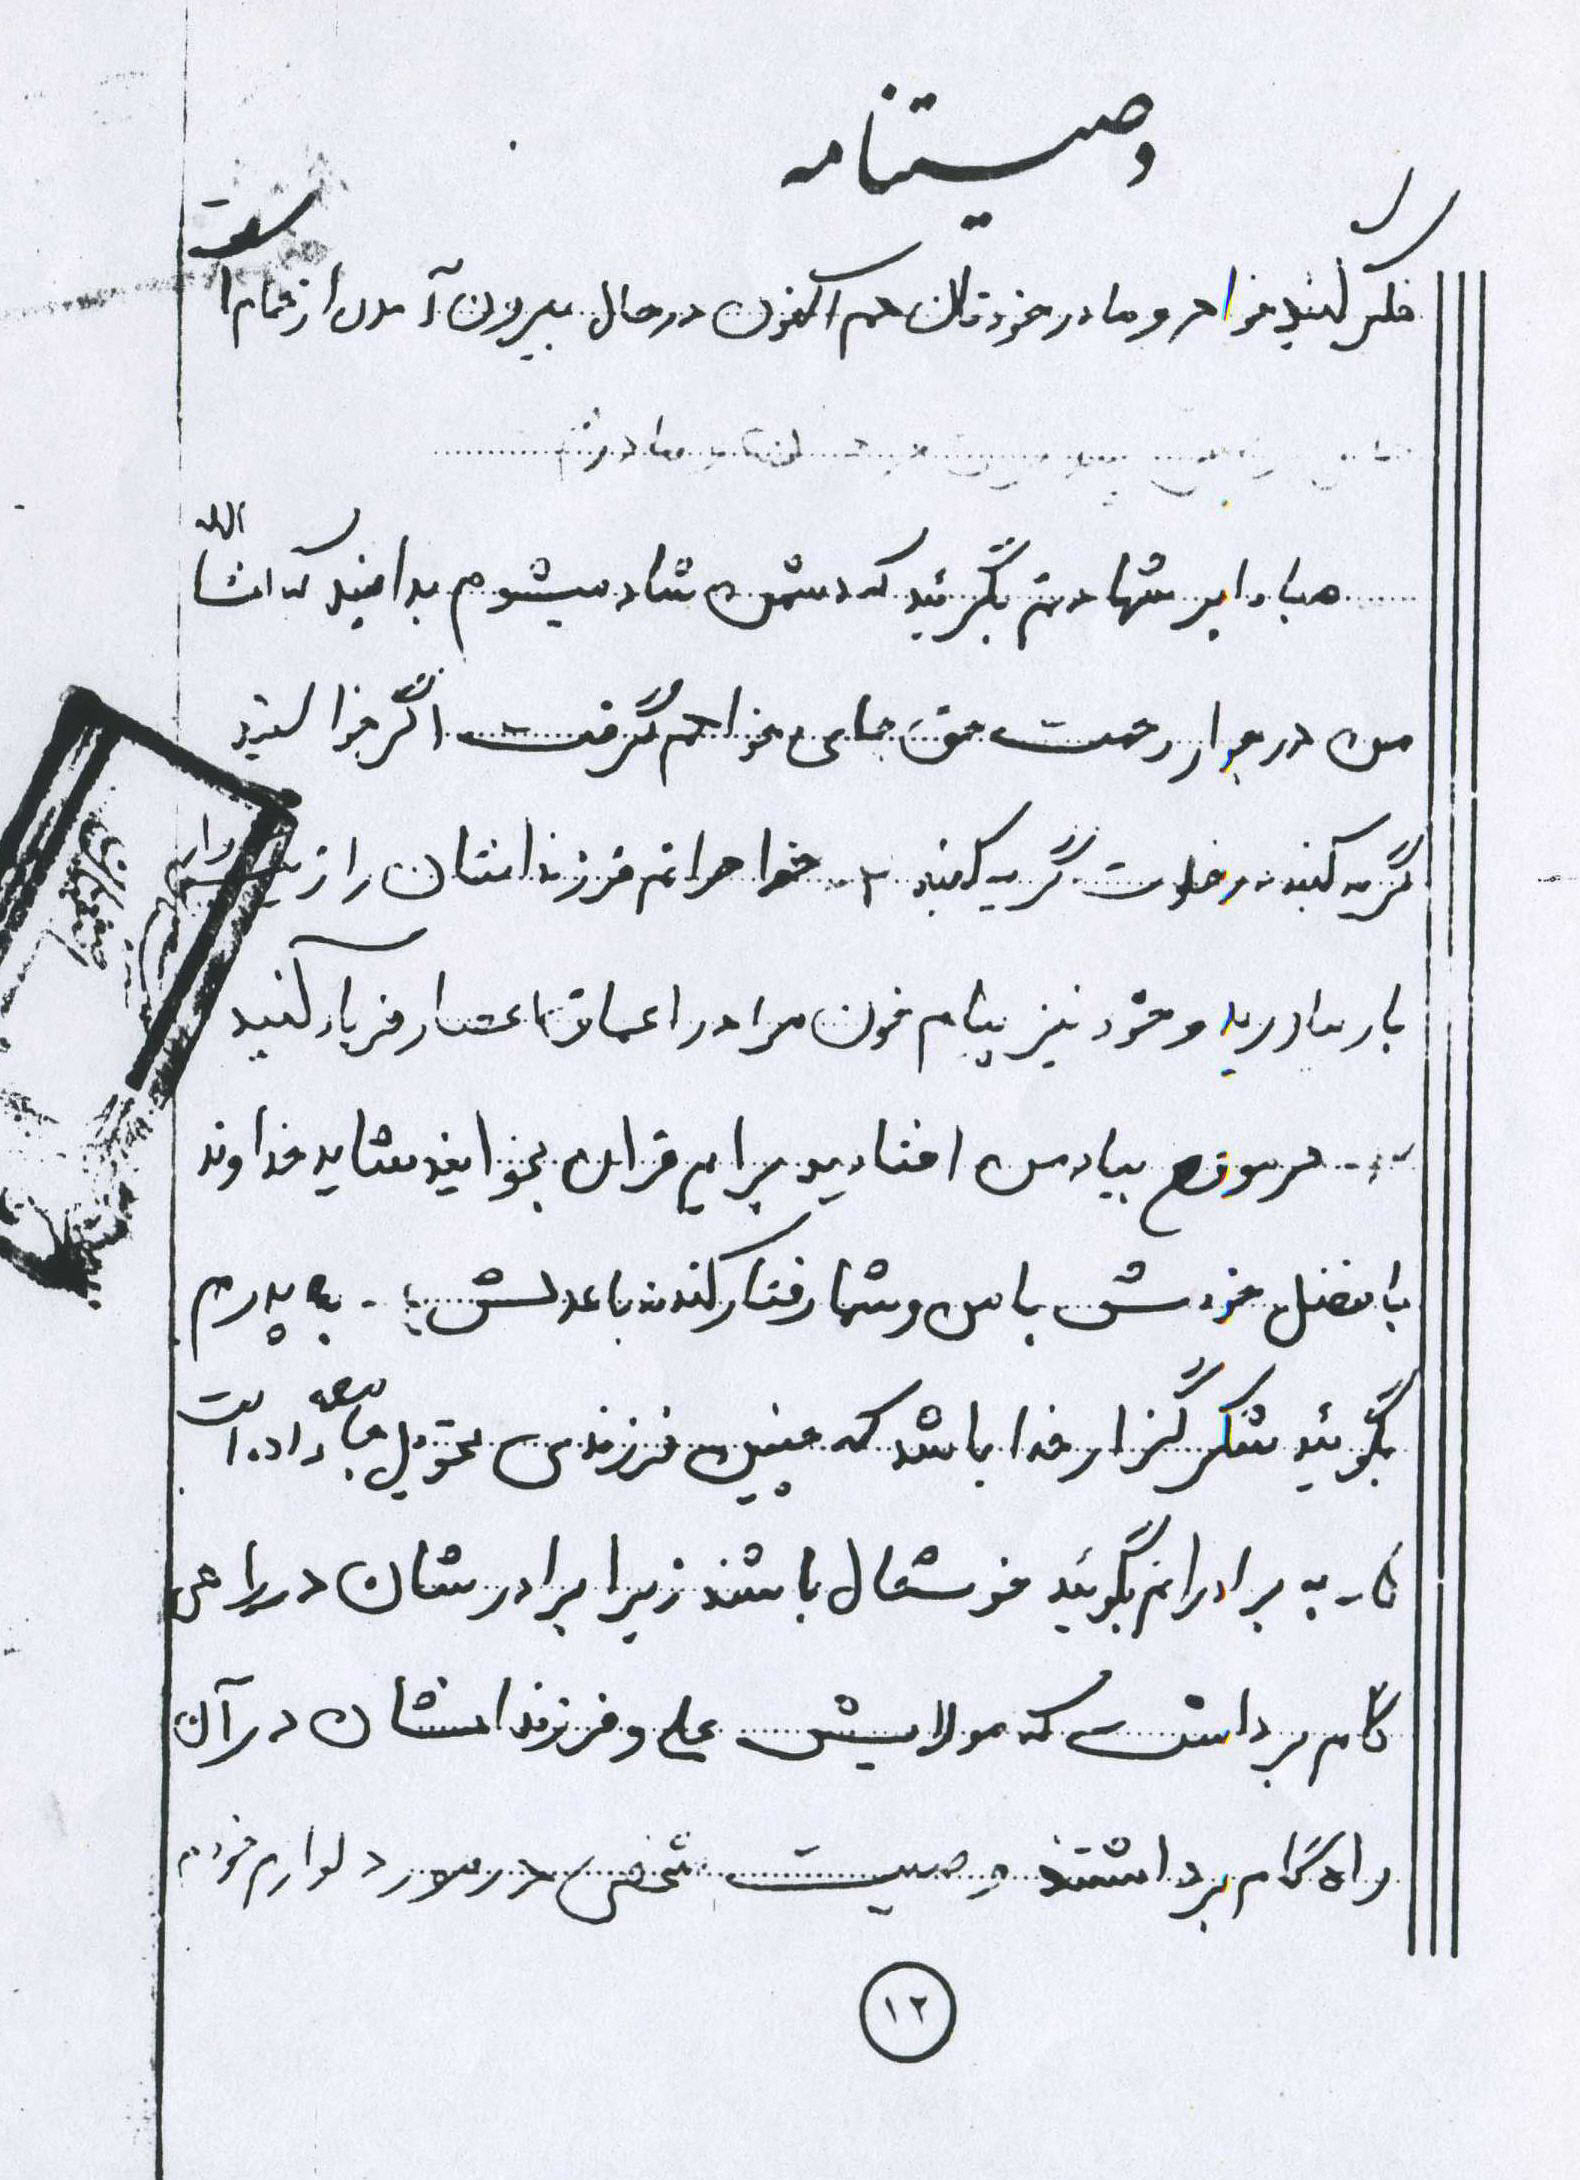 وصیتنامه
فکر کنید خواهر و مادر خودتان هم اکنون در حال بیرون آمدن از حمام است
مادرم
مبادا بر شهادتم بگرئید که دشمن شاد میشوم بدانید که انشاالله
من در جوار رحمت حق جای خواهم گرفت اگر خواستید
گریه کنید در خلوت گریه کنید ۳- خواهرانم فرزندانتان را زینب وار
بار بیاورید و خود نیز پیام خون مرا در اعماق اعصار فریاد کنید
هر موقع بیاد من افتادید برایم قرآن بخوانید شاید خداوند
با فضل خودش با من و شما رفتار کند نه با عدلش - به پدرم
بگوئید شکر گزار خدا باشد که چنین فرزندی تحویل جامعه داده است
به برادرانم بگوئید خوشحال باشند زیرا برادرشان در راهی
گام برداشت که مولایش علی و فرزندانشان در آن
راه گام برداشتند وصیت شخصی در مورد لوازم خودم
۱۲